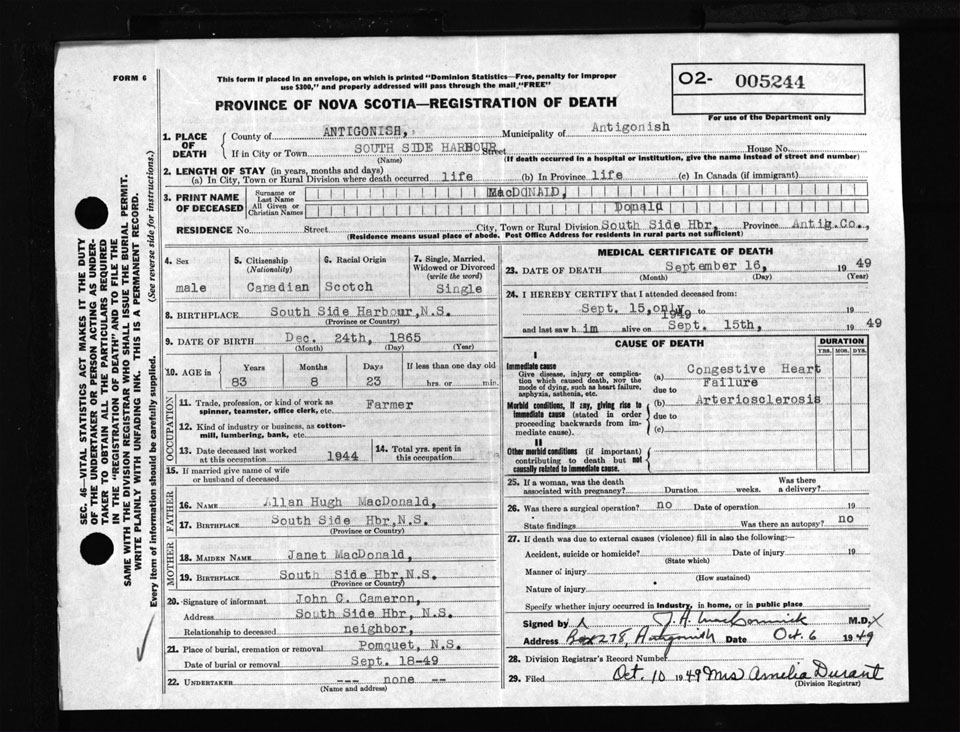 FORM 6
This form if placed in an envelope, on which is printed "Dominion Statistics—Free, penalty for improper
use $300," and properly addressed will pass through the mail "FREE"
O2- 005244
For use of the Department only
PROVINCE OF NOVA SCOTIA—REGISTRATION OF DEATH
SEC. 46—VITAL STATISTICS ACT MAKES IT THE DUTY
OF THE UNDERTAKER OR PERSON ACTING AS UNDER-
TAKER TO OBTAIN ALL THE PARTICULARS REQUIRED
IN THE "REGISTRATION OF DEATH" AND TO FILE THE
SAME WITH THE DIVISION REGISTRAR WHO SHALL ISSUE THE BURIAL PERMIT.
WRITE PLAINLY WITH UNFADING INK. THIS IS A PERMANENT RECORD.
Every item of information should be carefully supplied. (See reverse side for instructions.)
1. PLACE OF DEATH
County of ANTIGONISH, Municipality of Antigonish
If in City or Town SOUTH SIDE HARBOUR Street House No.
(Name) (If death occurred in a hospital or institution, give the name instead of street and number)
2. LENGTH OF STAY (in years, months and days)
(a) In City, Town or Rural Division where death occurred life (b) In Province life (c) In Canada (if immigrant)
3. PRINT NAME OF DECEASED
Surname or Last Name MacDONALD,
All Given or Christian Names Donald
RESIDENCE No. Street City, Town or Rural Division South Side Hbr, Province Antig.Co.,
(Residence means usual place of abode. Post Office Address for residents in rural parts not sufficient)
4. Sex 5. Citizenship (Nationality) 6. Racial Origin 7. Single, Married, Widowed or Divorced (write the word)
male Canadian Scotch Single
8. BIRTHPLACE South Side Harbour, N.S.
(Province or Country)
9. DATE OF BIRTH Dec. 24th, 1865
(Month) (Day) (Year)
10. AGE in Years Months Days If less than one day old
83 8 23 hrs. or min.
OCCUPATION
11. Trade, profession or kind of work as Farmer
spinner, teamster, office clerk, etc.
12. Kind of industry or business, as cotton-
mill, lumbering, bank, etc.
13. Date deceased last worked at this occupation 1944 14. Total yrs. spent in this occupation
15. If married give name of wife
or husband of deceased
FATHER
16. NAME Allan Hugh MacDonald,
17. BIRTHPLACE South Side Hbr, N.S.
(Province or Country)
MOTHER
18. MAIDEN NAME Janet MacDonald,
19. BIRTHPLACE South Side Hbr, N.S.
(Province or Country)
20. Signature of informant John C. Cameron,
Address South Side Hbr, N.S.
Relationship to deceased neighbor,
21. Place of burial, cremation or removal Pomquet, N.S.
Date of burial or removal Sept. 18-49
22. UNDERTAKER --- none --
(Name and address)
MEDICAL CERTIFICATE OF DEATH
23. DATE OF DEATH September 16, 1949
(Month) (Day) (Year)
24. I HEREBY CERTIFY that I attended deceased from:
Sept. 15, only 1949 to 19
and last saw h im alive on Sept. 15th, 1949
CAUSE OF DEATH DURATION
YRS. MOS. DYS.
I
Immediate cause
Give disease, injury or complica-
tion which caused death, NOT the
mode of dying, such as heart failure,
asphyxia, asthenia, etc.
(a) Congestive Heart
Failure
due to
Morbid conditions, if any, giving rise to
immediate cause (stated in order
proceeding backwards from im-
mediate cause).
(b) Arteriosclerosis
due to
(c)
II
Other morbid conditions (if important)
contributing to death but not
causally related to immediate cause.
25. If a woman, was the death Was there
associated with pregnancy? Duration weeks. a delivery?
26. Was there a surgical operation? no Date of operation 19
State findings Was there an autopsy? no
27. If death was due to external causes (violence) fill in also the following:—
Accident, suicide or homicide? Date of injury 19
(State which)
Manner of injury
(How sustained)
Nature of injury
Specify whether injury occurred in industry, in home, or in public place
Signed by J. A. MacCormick M.D.
Address Box 278, Antigonish Date Oct. 6 1949
28. Division Registrar's Record Number
29. Filed Oct. 10 1949 Mrs Amelia Durant
(Division Registrar)